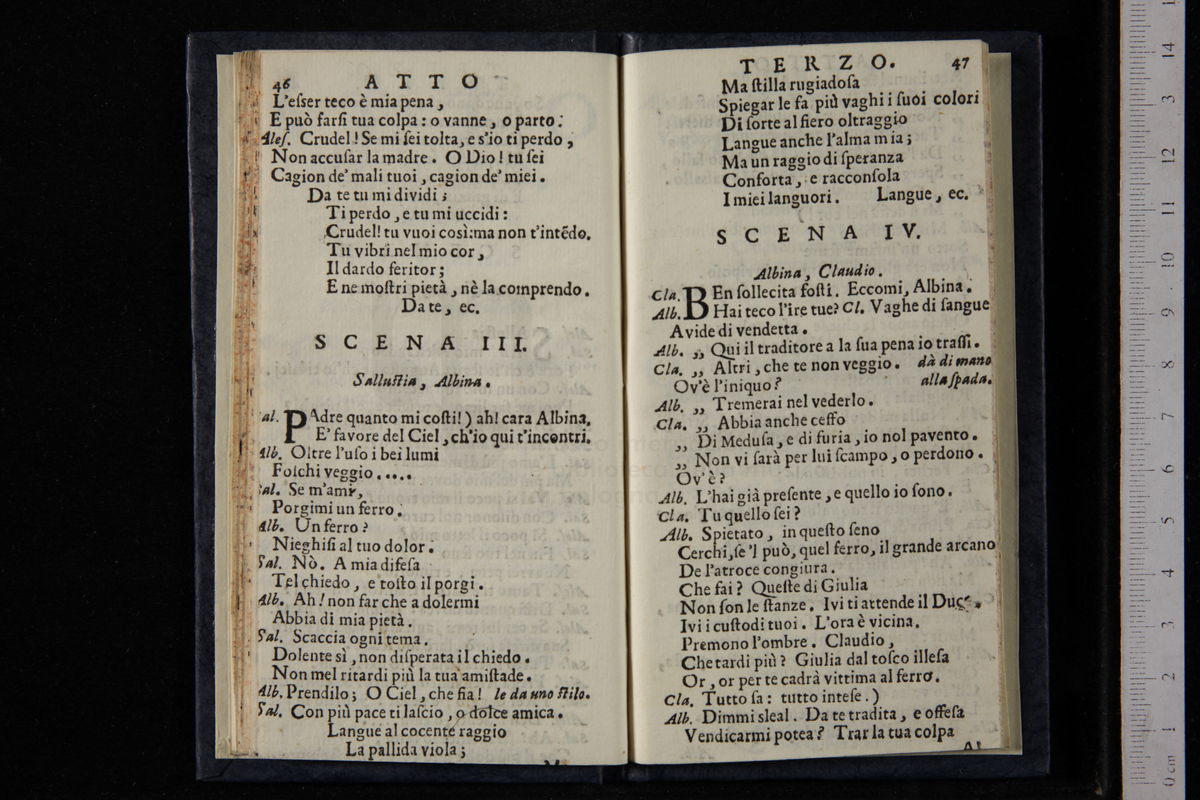 46 ATTO
L'eſser teco è mia pena,
E può farſi tua colpa: o vanne, o parto.
Aleſ. Crudel! Se mi ſei tolta, e s'io ti perdo,
Non accuſar la madre. O Dio! tu ſei
Cagion de' mali tuoi, cagion de' miei.
Da te tu mi dividi;
Ti perdo, e tu mi uccidi:
Crudel! tu vuoi così: ma non t'intẽdo.
Tu vibri nel mio cor,
Il dardo feritor;
E ne moſtri pietà, nè la comprendo.
Da te, ec.
SCENA III.
Salluſtia, Albina.
al. PAdre quanto mi coſti!) ah! cara Albina,
E' favore del Ciel, ch'io qui t'incontri.
Alb. Oltre l'uſo i bei lumi
Foſchi veggio.....
al. Se m'ami,
Porgimi un ferro.
Alb. Un ferro?
Nieghiſi al tuo dolor.
Sal. Nò. A mia difeſa
Tel chiedo, e toſto il porgi.
Alb. Ah! non far che a dolermi
Abbia di mia pietà.
Sal. Scaccia ogni tema.
Dolente sì, non diſperata il chiedo.
Non mel ritardi più la tua amiſtade.
Alb. Prendilo; O Ciel, che fia! le da uno ſtilo.
Sal. Con più pace ti laſcio, o dolce amica.
Langue al cocente raggio
La pallida viola;
TERZO. 47
Ma ſtilla rugiadoſa
Spiegar le fa più vaghi i ſuoi colori
Di ſorte al fiero oltraggio
Langue anche l'alma mia;
Ma un raggio di ſperanza
Conforta, e racconſola
I miei languori. Langue, ec.
SCENA IV.
Albina, Claudio.
Cla. BEn ſollecita foſti. Eccomi, Albina.
Alb. Hai teco l'ire tue? Cl. Vaghe di ſangue
Avide di vendetta.
Alb. ,, Qui il traditore a la ſua pena io traſſi.
Cla. ,, Altri, che te non veggio. dà di mano
Ov'è l'iniquo? alla ſpada.
Alb. ,, Tremerai nel vederlo.
Cla. ,, Abbia anche ceffo
,, Di Meduſa, e di furia, io nol pavento.
,, Non vi ſarà per lui ſcampo, o perdono.
Ov'è?
Alb. L'hai già preſente, e quello io ſono.
Cla. Tu quello ſei?
Alb. Spietato, in queſto ſeno
Cerchi, ſe 'l può, quel ferro, il grande arcano
De l'atroce congiura.
Che fai? Queſte di Giulia
Non ſon le ſtanze. Ivi ti attende il Duce.
Ivi i cuſtodi tuoi. L'ora è vicina.
Premono l'ombre. Claudio,
Che tardi più? Giulia dal toſco illeſa
Or, or per te cadrà vittima al ferro.
Cla. Tutto ſa: tutto inteſe.)
Alb. Dimmi sleal. Da te tradita, e offeſa
Vendicarmi potea? Trar la tua colpa